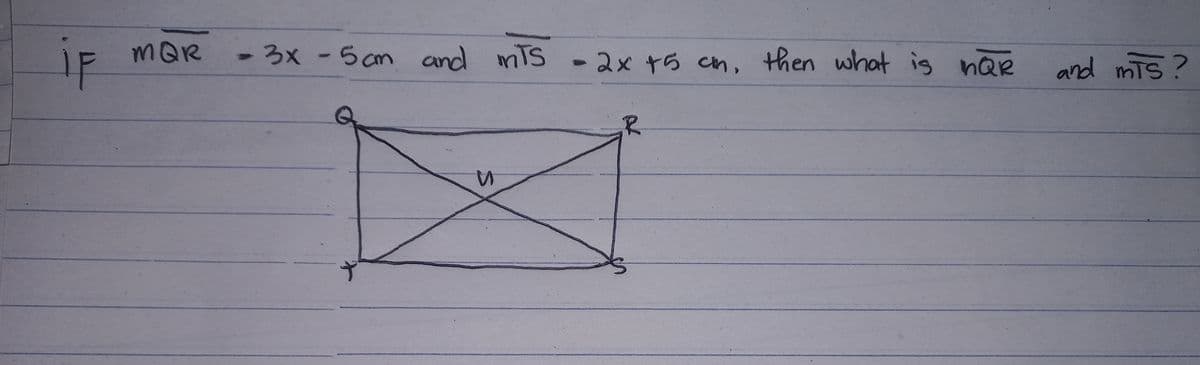 iF mQR = 3x - 5 cm and mTS = 2x + 5 cm, then what is mQR and mTS?
Q R
U
T S